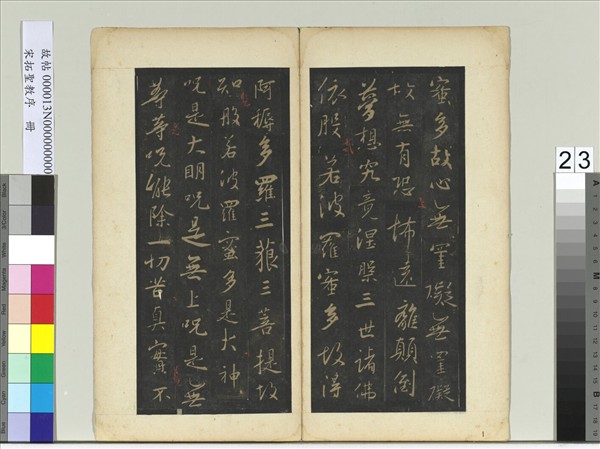 蜜多故心無罣礙無罣礙
故無有恐怖遠離顛倒
夢想究竟涅槃三世諸佛
依般若波羅蜜多故得
阿耨多羅三藐三菩提故
知般若波羅蜜多是大神
咒是大明咒是無上咒是無
等等咒能除一切苦真實不
故帖 000013N000000000
宋拓聖教序 冊
23